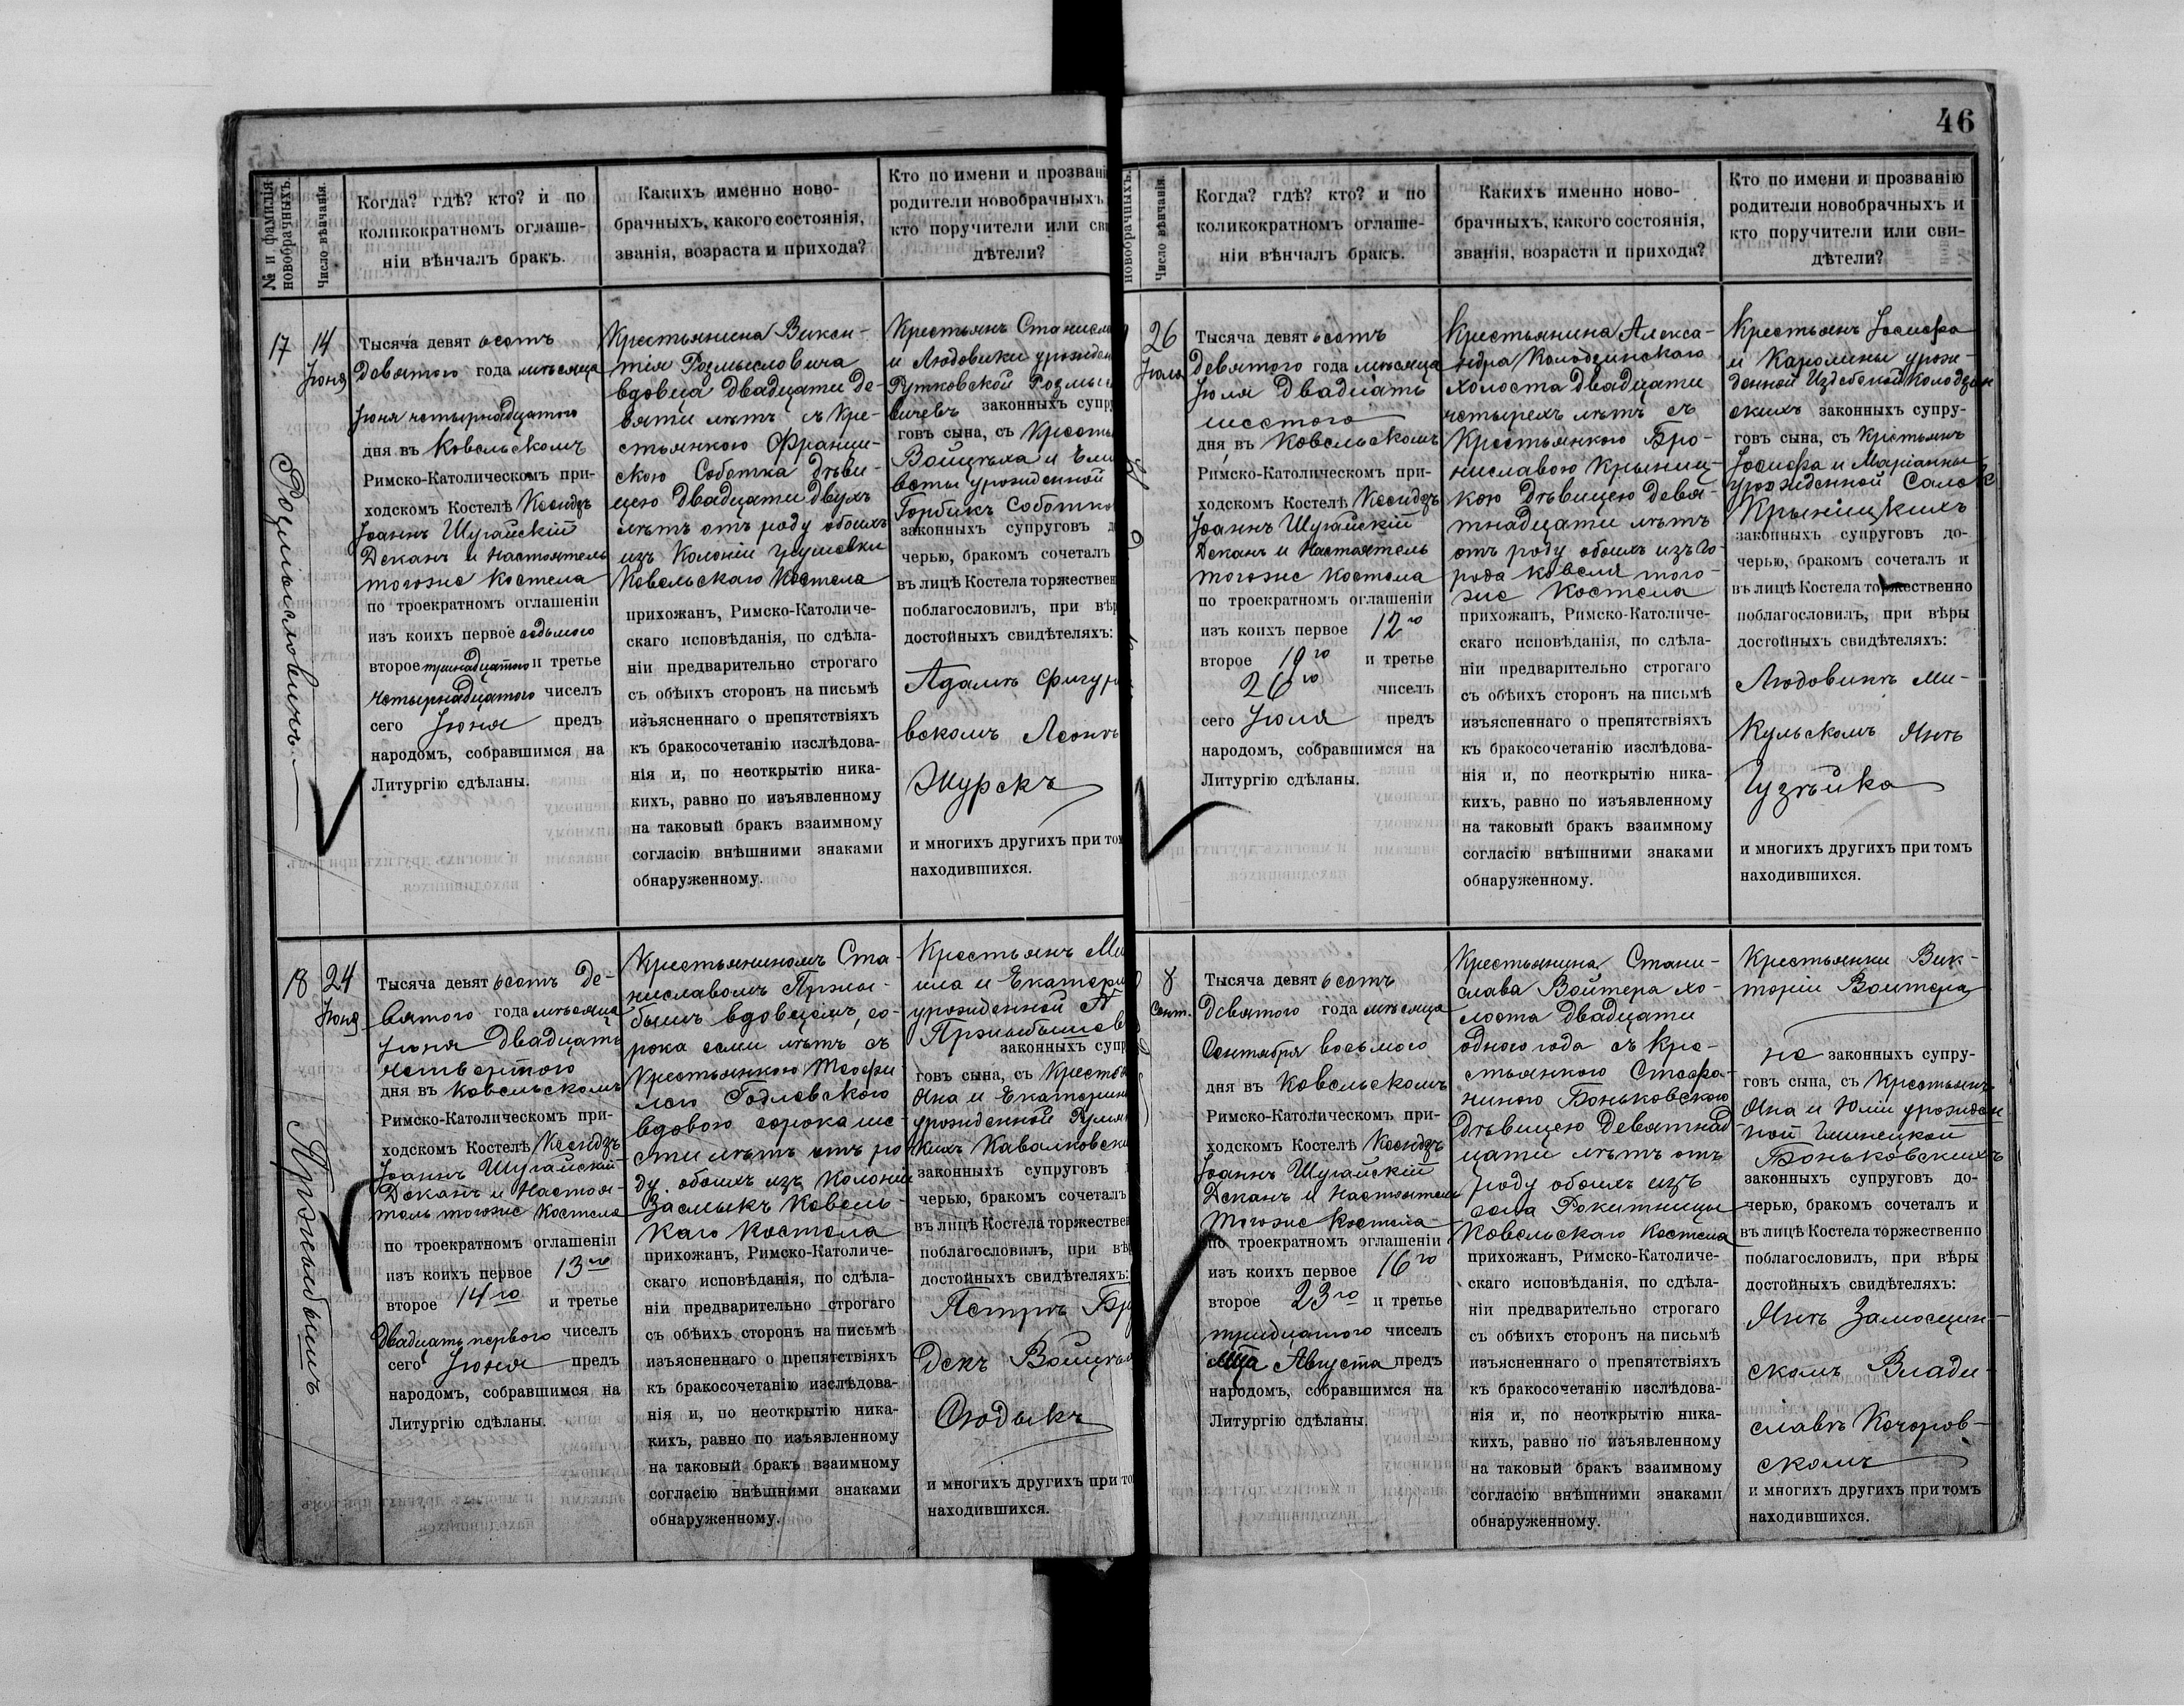 № и фамилія новобрачныхъ.
Число вѣнчанія.
Когда? гдѣ? кто? и по
коликократномъ оглаше-
ніи вѣнчалъ бракъ.
Какихъ именно ново-
брачныхъ, какого состоянія,
званія, возраста и прихода?
Кто по имени и прозвані
родители новобрачныхъ
кто поручители или св
дѣтели?
17
14
Іюня
Тысяча девятьсотъ
Девятого года мѣсяца
Іюня четырнадцатого
дня въ Ковельскомъ
Римско-Католическомъ при-
ходскомъ Костелѣ Ксендзъ
Іоаннъ Шугайскій
Деканъ и Настоятель
тогоже Костела
по троекратномъ оглашеніи
изъ коихъ первое седьмого
второе тринадцатого и третье
четырнадцатого чиселъ
сего Іюня предъ
народомъ, собравшимся на
Литургію сдѣланы.
Крестьянина Викен-
тія Розмысловича
вдовца двадцати де-
вяти лѣтъ съ кре-
стьянкою Франци-
скою Соботка дѣви-
цею двадцати двухъ
лѣтъ отъ роду обоихъ
изъ Колоніи
Ковельскаго Костела
прихожанъ, Римско-Католиче-
скаго исповѣданія, по сдѣла-
ніи предварительно строгаго
съ обѣихъ сторонъ на письмѣ
изъясненнаго о препятствіяхъ
къ бракосочетанію изслѣдова-
нія и, по неоткрытію ника-
кихъ, равно по изъявленному
на таковый бракъ взаимному
согласію внѣшними знаками
обнаруженному.
Крестьянъ Станисла
и Людовики урожден
Рутковской Розмыс
вичевъ законныхъ супру
говъ сына, съ Крестья
Войцѣха и Ели
веты урожденной
Горбикъ Соботко
законныхъ супруговъ д
черью, бракомъ сочеталъ
въ лицѣ Костела торжествен
поблагословилъ, при вѣр
достойныхъ свидѣтеляхъ:
Адамѣ Фигур
вскомъ Леонѣ
Журекъ
и многихъ другихъ при том
находившихся.
18
24
Іюня
Пржыбышъ
Тысяча девятьсотъ Де-
вятого года мѣсяца
Іюня Двадцать
четвертого
дня въ Ковельскомъ
Римско-Католическомъ при-
ходскомъ Костелѣ Ксендзъ
Іоаннъ Шугайскій
Деканъ и Настоя-
тель тогоже Костела
по троекратномъ оглашеніи
изъ коихъ первое 13го
второе 14го и третье
Двадцать первого чиселъ
сего Іюня предъ
народомъ, собравшимся на
Литургію сдѣланы.
Крестьяниномъ Ста-
ниславомъ Пржы-
бышъ вдовцомъ, со-
рока семи лѣтъ съ
Крестьянкою Теофи-
лею Годлевского
вдовою сорока шес-
сти лѣтъ отъ ро
ду обоихъ изъ Колоніи
Засмыкъ Ковель-
каго Костела
прихожанъ, Римско-Католиче-
скаго исповѣданія, по сдѣла-
ніи предварительно строгаго
съ обѣихъ сторонъ на письмѣ
изъясненнаго о препятствіяхъ
къ бракосочетанію изслѣдова-
нія и, по неоткрытію ника-
кихъ, равно по изъявленному
на таковый бракъ взаимному
согласію внѣшними знаками
обнаруженному.
Крестьянъ Ми
ила и Екатери
урожденной
Пржыбышев
законныхъ супр
говъ сына, съ Крестья
Яна и Екатерин
урожденной
Кавалковски
законныхъ супруговъ
черью, бракомъ сочеталъ
въ лицѣ Костела торжестве
поблагословилъ, при вѣ
достойныхъ свидѣтеляхъ:
Петрѣ Бр
декъ Войцѣх
Стодыкъ
и многихъ другихъ при то
находившихся.
46
новобрачныхъ.
Число вѣнчанія.
Когда? гдѣ? кто? и по
коликократномъ оглаше-
ніи вѣнчалъ бракъ.
Какихъ именно ново-
брачныхъ, какого состоянія,
званія, возраста и прихода?
Кто по имени и прозванію
родители новобрачныхъ и
кто поручители или сви-
дѣтели?
26
Іюля
Тысяча девятьсотъ
Девятого года мѣсяца
Іюля Двадцать
шестого
дня въ Ковельскомъ
Римско-Католическомъ при-
ходскомъ Костелѣ Ксендзъ
Іоаннъ Шугайскій
Деканъ и Настоятель
тогоже Костела
по троекратномъ оглашеніи
изъ коихъ первое 12го
второе 19го и третье
26го чиселъ
сего Іюля предъ
народомъ, собравшимся на
Литургію сдѣланы.
Крестьянина Алекса-
ндра Колодзинскаго
холоста двадцати
четырехъ лѣтъ съ
Крестьянкою Бро-
ниславою Крыниц-
кою дѣвицею девя-
тнадцати лѣтъ
отъ роду обоихъ изъ го-
рода Ковеля того-
же Костела
прихожанъ, Римско-Католиче-
скаго исповѣданія, по сдѣла-
ніи предварительно строгаго
съ обѣихъ сторонъ на письмѣ
изъясненнаго о препятствіяхъ
къ бракосочетанію изслѣдова-
нія и, по неоткрытію ника-
кихъ, равно по изъявленному
на таковый бракъ взаимному
согласію внѣшними знаками
обнаруженному.
Крестьянъ Іосифа
и Каролины урож-
денной Издебской Колодзин
скихъ законныхъ супру-
говъ сына, съ Крестьянъ
Іосифа и Маріанны
урожденной
Крыницкихъ
законныхъ супруговъ до-
черью, бракомъ сочеталъ и
въ лицѣ Костела торжественно
поблагословилъ, при вѣры
достойныхъ свидѣтеляхъ:
Людовикѣ Ми-
кульскомъ Янѣ
Гузѣйка
и многихъ другихъ при томъ
находившихся.
8
Сент.
Тысяча девятьсотъ
Девятого года мѣсяца
Сентября восьмого
дня въ Ковельскомъ
Римско-Католическомъ при-
ходскомъ Костелѣ Ксендзъ
Іоаннъ Шугайскій
Деканъ и Настоятель
тогоже Костела
по троекратномъ оглашеніи
изъ коихъ первое 16го
второе 23го и третье
тридцатого чиселъ
мца Августа предъ
народомъ, собравшимся на
Литургію сдѣланы.
Крестьянина Стани-
слава Войтера хо-
лоста двадцати
одного года съ кре-
стьянкою Стефа-
ниною Боньковскою
Дѣвицею Девятнад
цати лѣтъ отъ
роду обоихъ изъ
села Рокитницы
Ковельскаго Костела
прихожанъ, Римско-Католиче-
скаго исповѣданія, по сдѣла-
ніи предварительно строгаго
съ обѣихъ сторонъ на письмѣ
изъясненнаго о препятствіяхъ
къ бракосочетанію изслѣдова-
нія и, по неоткрытію ника-
кихъ, равно по изъявленному
на таковый бракъ взаимному
согласію внѣшними знаками
обнаруженному.
Крестьянки Вик-
торіи Войтера
не законныхъ супру-
говъ сына, съ Крестьянъ
Яна и Юліи урожден
ной
Боньковскихъ
законныхъ супруговъ до-
черью, бракомъ сочеталъ и
въ лицѣ Костела торжественно
поблагословилъ, при вѣры
достойныхъ свидѣтеляхъ:
Янѣ Замосцин-
скомъ Влади-
славѣ Кочоров-
скомъ
и многихъ другихъ при томъ
находившихся.